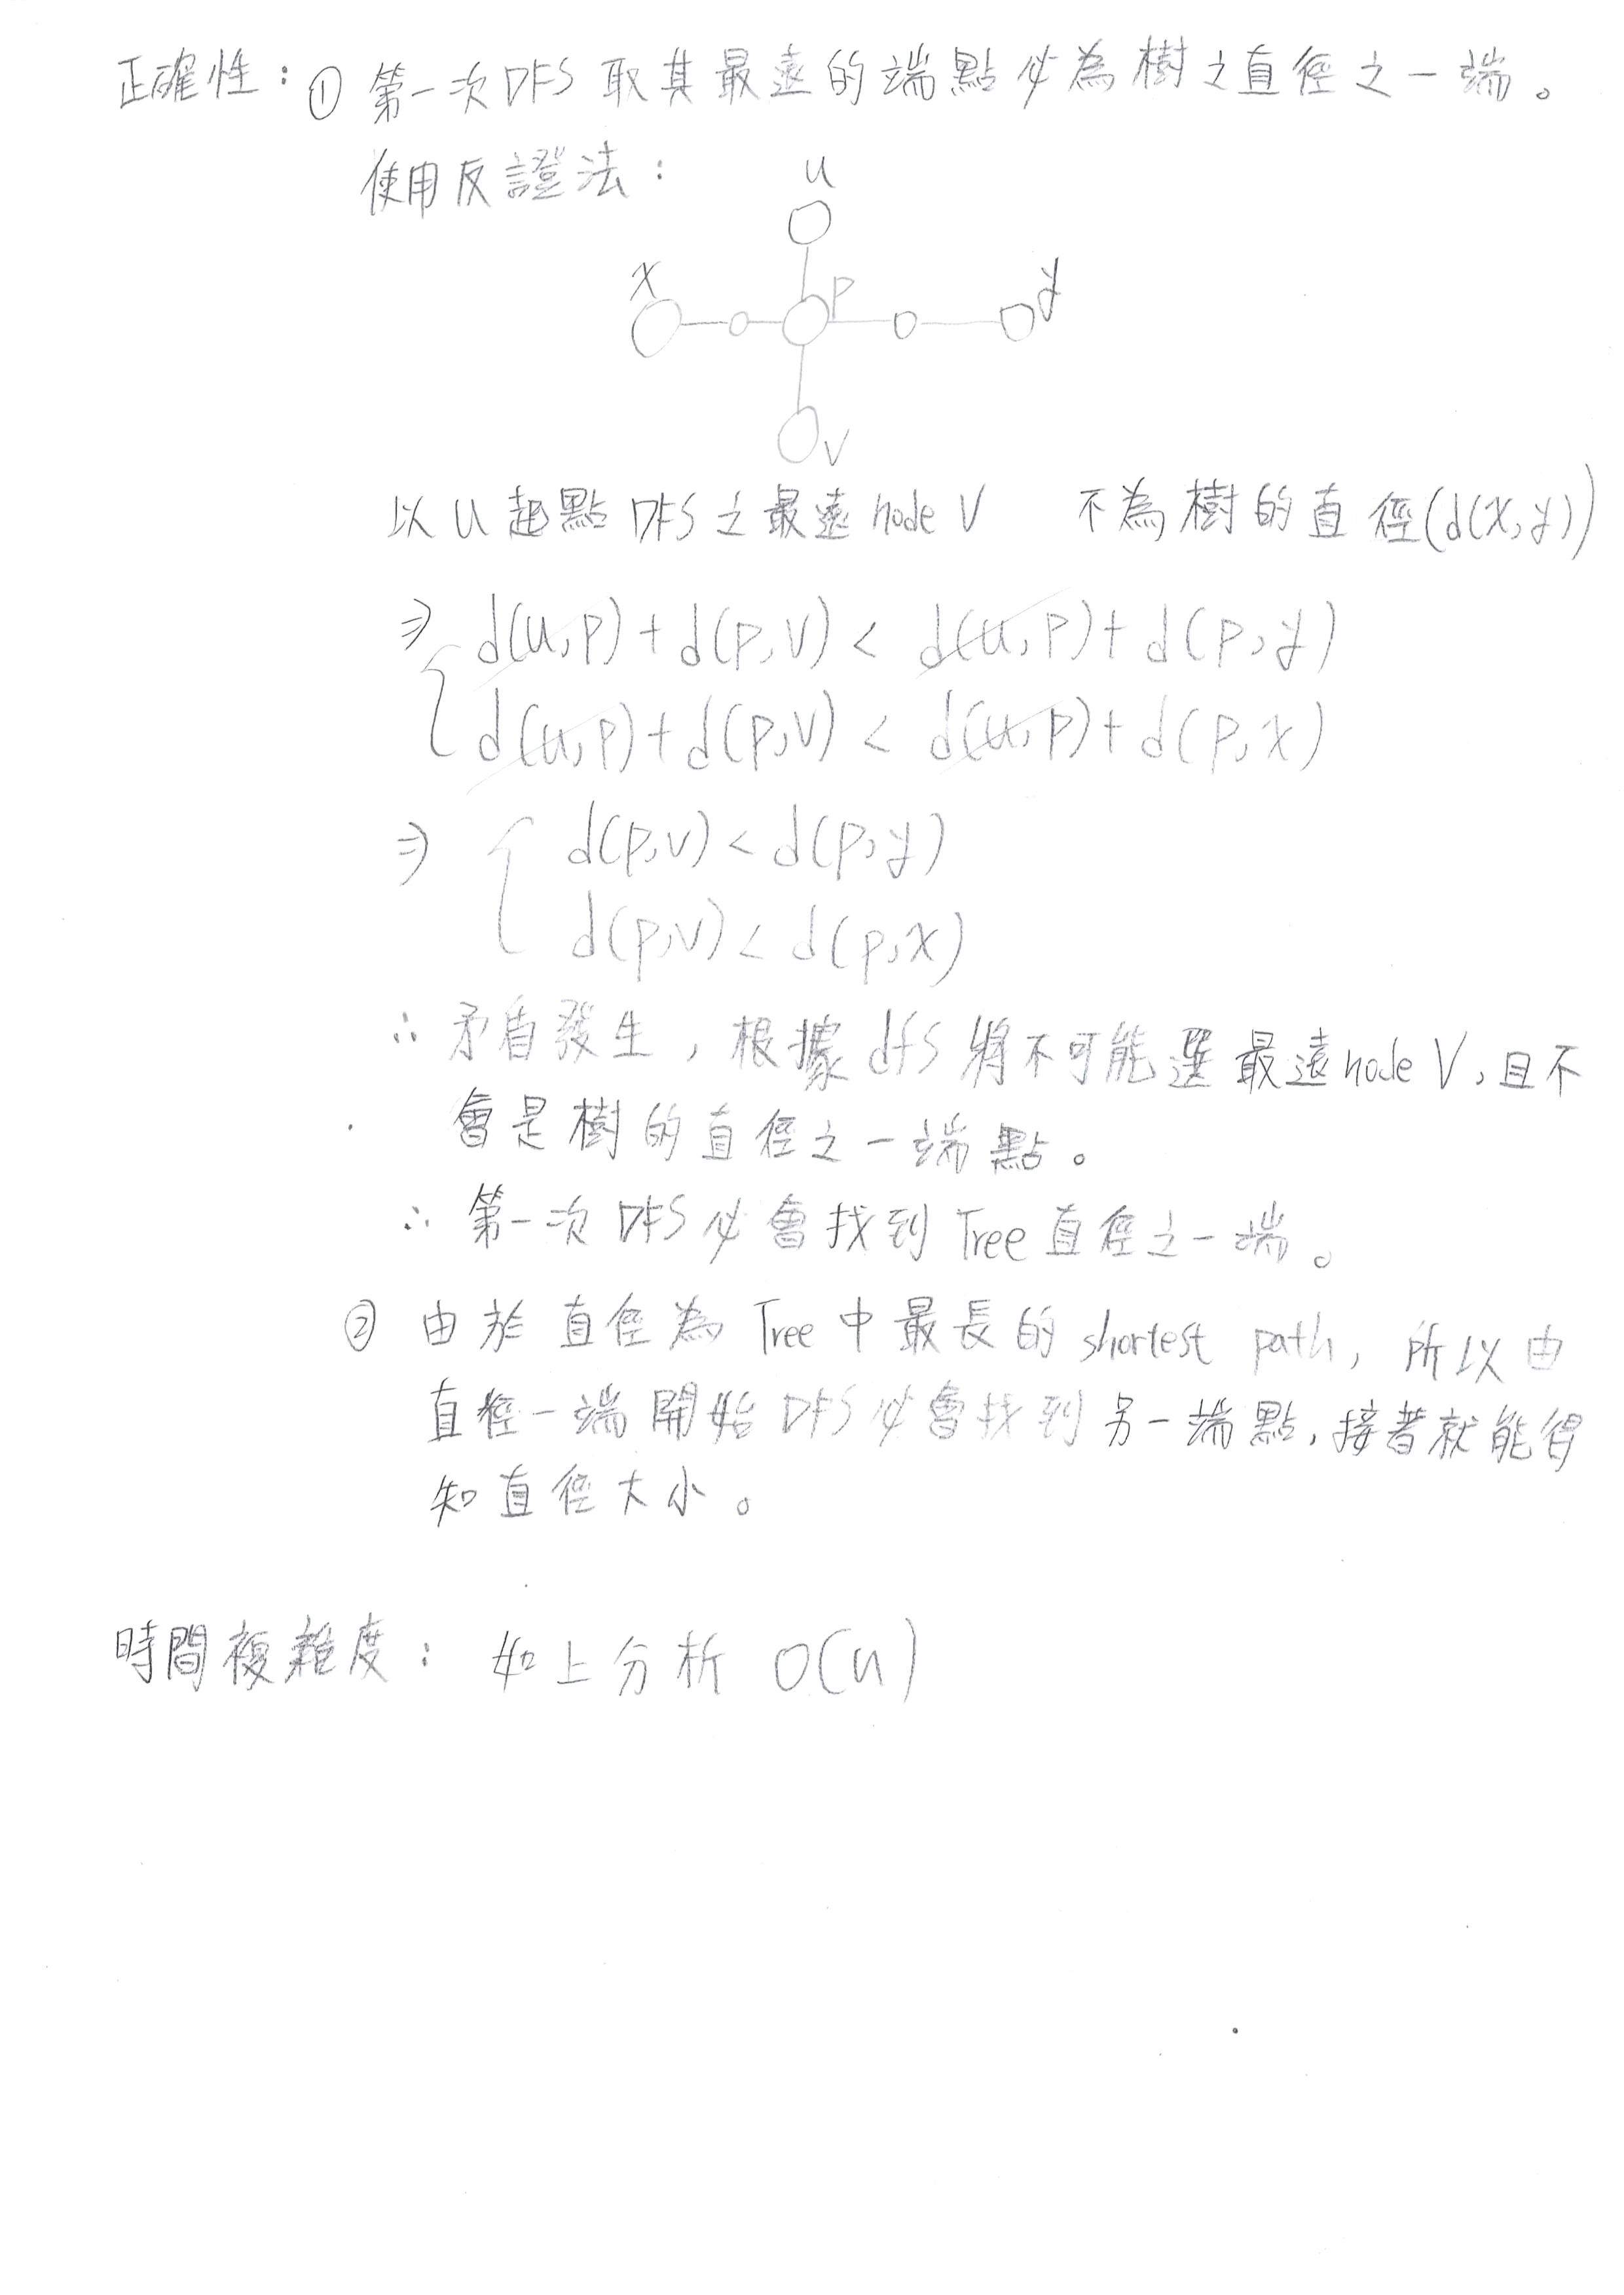 正確性：① 第一次DFS 取其最遠的端點必為樹之直徑之一端。
使用反證法：
u
x
p
y
v
以 u 起點 DFS 之最遠 node v 不為樹的直徑(d(x,y))
⇒ { d(u,p) + d(p,v) < d(u,p) + d(p,y)
d(u,p) + d(p,v) < d(u,p) + d(p,x)
⇒ { d(p,v) < d(p,y)
d(p,v) < d(p,x)
∴ 矛盾發生，根據 dfs 將不可能選最遠node v，且不
會是樹的直徑之一端點。
∴ 第一次 DFS 必會找到 Tree 直徑之一端。
② 由於直徑為 Tree 中最長的 shortest path，所以由
直徑一端開始 DFS 必會找到另一端點，接著就能得
知直徑大小。
時間複雜度：如上分析 O(n)